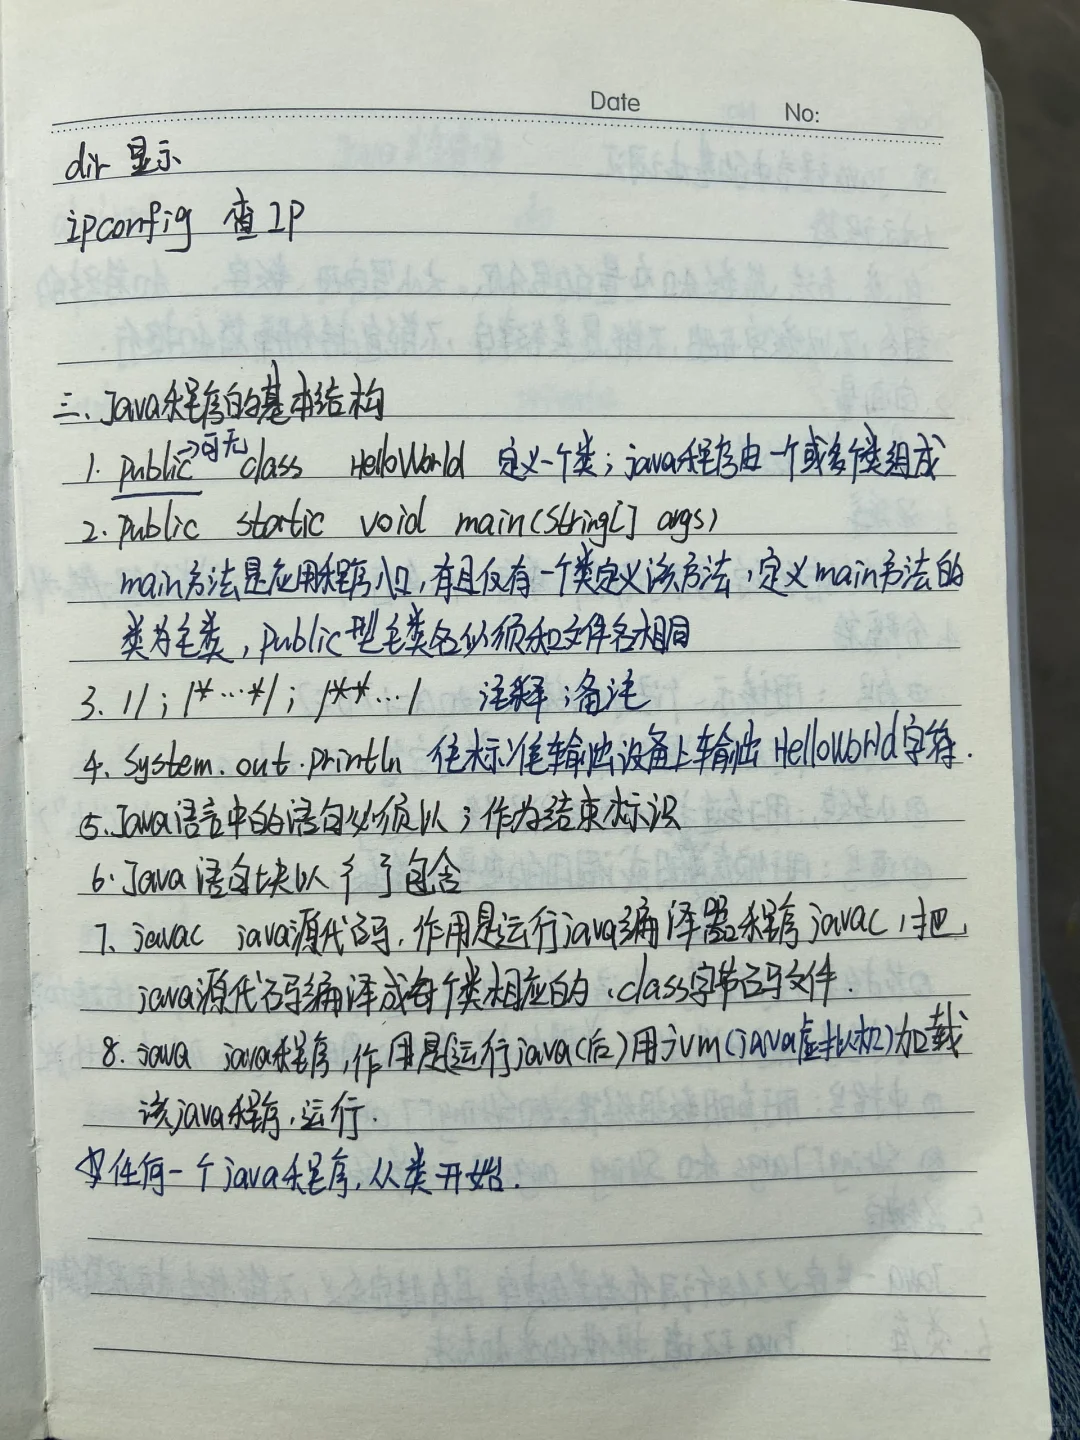 Date No:
dir 显示
ipconfig 查IP
三.Java程序的基本结构
→可无
1. public class HelloWorld 定义一个类；java程序由一个或多个类组成
2. public static void main(String[] args)
main方法是应用程序入口，有且仅有一个类定义该方法，定义main方法的
类为主类，public型主类名必须和文件名相同
3. //；/*…*/；/**…/ 注释；备注
4. System.out.println 在标准输出设备上输出HelloWorld字符.
⑤.Java语言中的语句必须以；作为结束标识
6. Java语句块以{}包含
7. javac java源代码，作用是运行java编译器程序javac，把
java源代码编译成每个类相应的.class字节码文件.
8. java java程序，作用是运行java(后)用jvm(java虚拟机)加载
该java程序，运行.
任何一个java程序，从类开始.